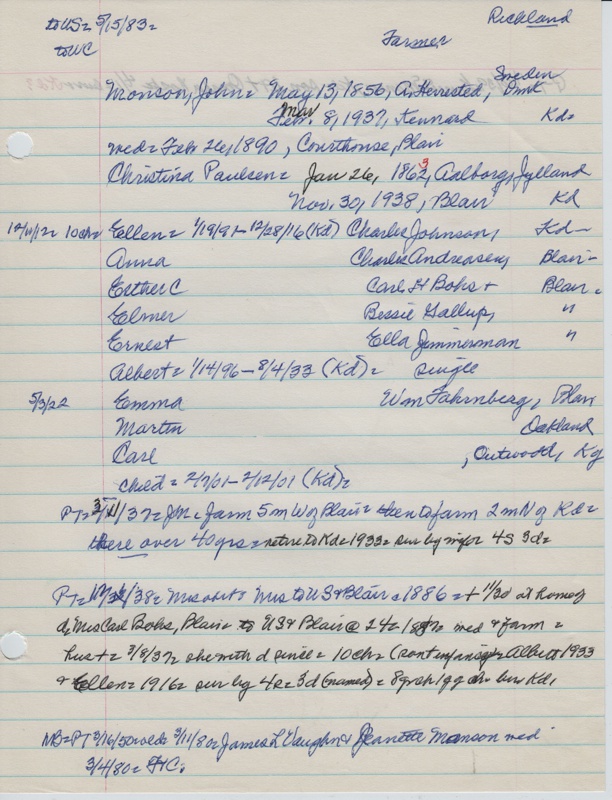 Richland
to US = 5/15/83 =
to WC
Farmer
Sweden
Monson, John = May 13, 1856, A. Herrested, Dmk
Mar
Feb. 8, 1937, Kennard Kd=
med = Feb 26, 1890, Courthouse, Blair
3
Christina Paulsen = Jan 26, 1862, Aalborg, Jylland
Nov. 30, 1938, Blair Kd
10ch = Ellen = 1/19/91 - 12/28/16 (Kd) Charles Johnson, Kd -
Anna Charlie Andreasen, Blair -
Esther C Carl H Bohs + Blair =
Elmer Bessie Gallup, "
Ernest Ella Jimmerman "
Albert = 1/14/96 - 8/4/33 (Kd) = single
5/3/22 Emma Wm Fahrnberg, Blair
Martin Oakland
Carl , Outwood, Ky
child = 2/7/01 - 2/12/01 (Kd) =
/37 = JM = farm 5 m W of Blair = then to farm 2 m N of Kd =
there over 40 yrs = retire to Kd = 1933 = sur by 4s 3d =
/38 = Mrs to US & Blair = 1886 = + 11/30 at home of
d, Mrs Carl Bohs, Blair = to US & Blair @ 24 = med & farm =
hus + = 3/8/37 = she with d since = 10ch = Albert 1933
& Ellen = 1916 = sur by 4s = 3d (named) = 8 gch 1 ggch = bur Kd,
PT 3/16/80 = 3/11/80 = James L Vaughn & Jeanette Monson med
3/4/80 =